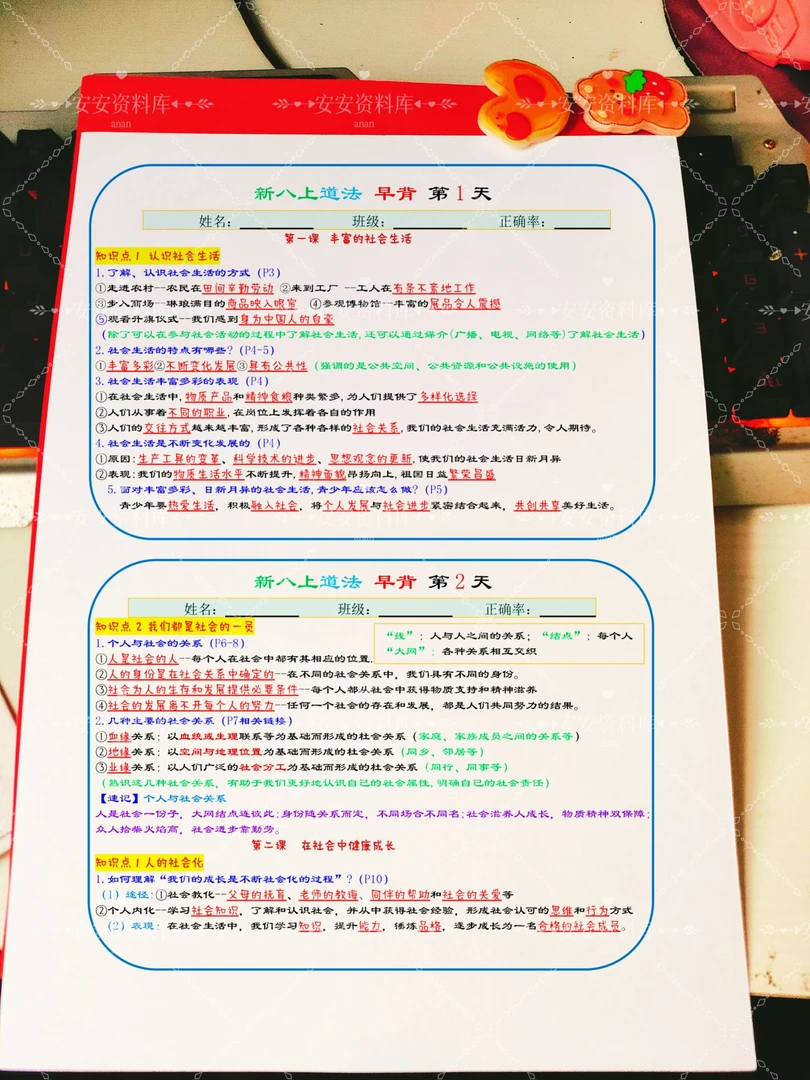 安安资料库 安安资料库 安安资料库
anan anan
新八上道法 早背 第1天
姓名：________ 班级：________ 正确率：________
第一课 丰富的社会生活
知识点1 认识社会生活
1.了解、认识社会生活的方式（P3）
①走进农村--农民在田间辛勤劳动 ②来到工厂 --工人在有条不紊地工作
③步入商场--琳琅满目的商品映入眼帘 ④参观博物馆--丰富的展品令人震撼
⑤观看升旗仪式--我们感到身为中国人的自豪
（除了可以在参与社会活动的过程中了解社会生活,还可以通过媒介(广播、电视、网络等)了解社会生活）
2.社会生活的特点有哪些?（P4-5）
①丰富多彩②不断变化发展③具有公共性（强调的是公共空间、公共资源和公共设施的使用）
3.社会生活丰富多彩的表现（P4）
①在社会生活中,物质产品和精神食粮种类繁多,为人们提供了多样化选择
②人们从事着不同的职业,在岗位上发挥着各自的作用
③人们的交往方式越来越丰富,形成了各种各样的社会关系,我们的社会生活充满活力,令人期待。
4.社会生活是不断变化发展的（P4）
①原因:生产工具的变革、科学技术的进步、思想观念的更新,使我们的社会生活日新月异
②表现:我们的物质生活水平不断提升,精神面貌昂扬向上,祖国日益繁荣昌盛
5.面对丰富多彩、日新月异的社会生活,青少年应该怎么做?（P5）
青少年要热爱生活，积极融入社会，将个人发展与社会进步紧密结合起来，共创共享美好生活。
新八上道法 早背 第2天
姓名：________ 班级：________ 正确率：________
知识点2 我们都是社会的一员
“线”：人与人之间的关系；“结点”：每个人
“大网”：各种关系相互交织
1.个人与社会的关系（P6-8）
①人是社会的人--每个人在社会中都有其相应的位置.
②人的身份是在社会关系中确定的--在不同的社会关系中，我们具有不同的身份。
③社会为人的生存和发展提供必要条件--每个人都从社会中获得物质支持和精神滋养
④社会的发展离不开每个人的努力--任何一个社会的存在和发展，都是人们共同努力的结果。
2.几种主要的社会关系（P7相关链接）
①血缘关系：以血统或生理联系等为基础而形成的社会关系（家庭、家族成员之间的关系等）
②地缘关系：以空间与地理位置为基础而形成的社会关系（同乡、邻居等）
③业缘关系：以人们广泛的社会分工为基础而形成的社会关系（同行、同事等）
（熟识这几种社会关系，有助于我们更好地认识自己的社会属性,明确自己的社会责任）
【速记】个人与社会关系
人是社会一份子，大网结点连彼此;身份随关系而定，不同场合不同名;社会滋养人成长，物质精神双保障;
众人拾柴火焰高，社会进步靠勤劳。
第二课 在社会中健康成长
知识点1 人的社会化
1.如何理解“我们的成长是不断社会化的过程”?（P10）
（1）途径:①社会教化--父母的抚育、老师的教诲、同伴的帮助和社会的关爱等
②个人内化--学习社会知识，了解和认识社会，并从中获得社会经验，形成社会认可的思维和行为方式
（2）表现：在社会生活中，我们学习知识，提升能力，锤炼品格，逐步成长为一名合格的社会成员。